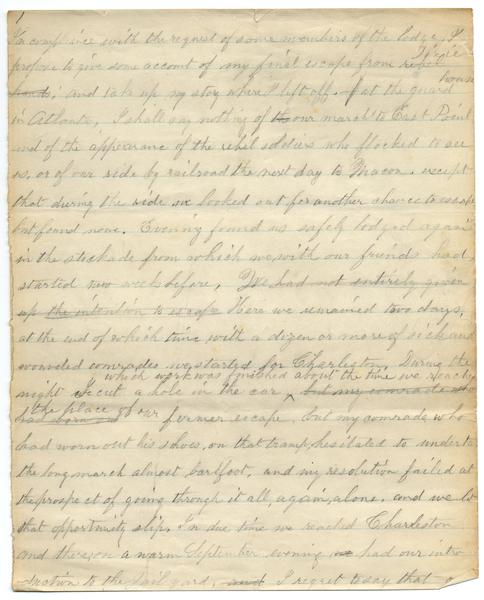 1
In compliance with the request of some members of the Lodge, I
propose to give some account of my final escape from rebel
hands, and take up my story where I left off at the guard house
in Atlanta, I shall say nothing of our march to East Point
and of the appearance of the rebel soldiers who flocked to see
us, or of our ride by railroad the next day to Macon. except
that during the ride we looked out for another chance to escape
but found none. Evening found us safely lodged again
in the stockade from which we, with our friends had
started two weeks before, We had not entirely given
up the intention to escape Here we remained two days,
at the end of which time with a dozen or more of sick and
wounded comrades we started for Charleston. During the
which work was finished about the time we reach
night I cut a hole in the car but my comrade who
had worn out
the place of our former escape, but my comrade who
had worn out his shoes, on that tramp, hesitated to undertake
the long march almost barefoot, and my resolution failed at
the prospect of going through it all, again, alone. and we let
that opportunity slip. In due time we reached Charleston
and there, on a warm September evening we had our intro
duction to the jail yard, and I regret to say that